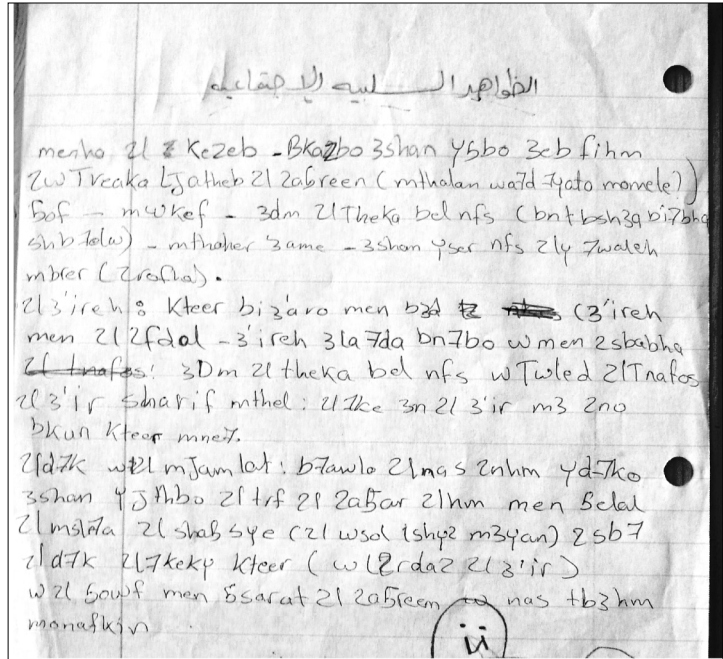 الظواهر السلبيه الاجتماعيه
menho 2l Kezeb - BKazbo 3shan y5bo 3eb fihm
2w Treaka LJatheb 2l 2a5reen (mthalan wa7d 7yato momele)
5of - mwkef - 3dm 2lTheka bel nfs (bnt bsh3a bi7bha
shb 7olw) - mthaher 3ame - 3shan yser nfs 2ly 7waleh
mbrer (2rafha).
2l3'ireh: Kteer bi3'aro men b3d (3'ireh
men 2l2fdal - 3'ireh 3la 7da bn7bo w men 2sbabha
2l tnafos: 3Dm 2l theka bel nfs wTwled 2lTnafos
2l3'ir sharif mthel: 2l7ke 3n 2l 3'ir m3 2no
bkun Kteer mne7.
2ld7k w2l mJamlat: b7awlo 2lnas 2nhm yd7ko
3shan yJthbo 2ltrf 2l 2a5ar 2lhm men 5elal
2lmsl7a 2l sha5sye (2l wsol lshy2 m3yan) 2sb7
2ld7k 2l7keky Kteer (w l2rda2 2l3'ir)
w 2l 5owf men 5sarat 2l 2a5reen nas tb3hm
monafkin